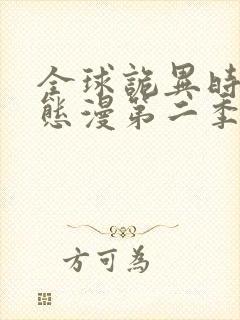 全球詭異時
態漫第二季
方可為